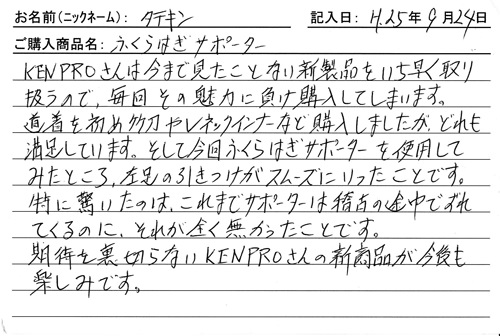 お名前(ニックネーム): タテキン 記入日: H.25年9月24日
ご購入商品名: ふくらはぎサポーター
KENPROさんは今まで見たことない新製品をいち早く取り
扱うので、毎回その魅力に負け購入してしまいます。
道着を初め竹刀やVネックインナーなど購入しましたが、どれも
満足しています。そして今回ふくらはぎサポーターを使用して
みたところ、左足の引きつけがスムーズにいったことです。
特に驚いたのは、これまでサポーターは稽古の途中でずれ
てくるのに、それが全く無かったことです。
期待を裏切らないKENPROさんの新商品が今後も
楽しみです。